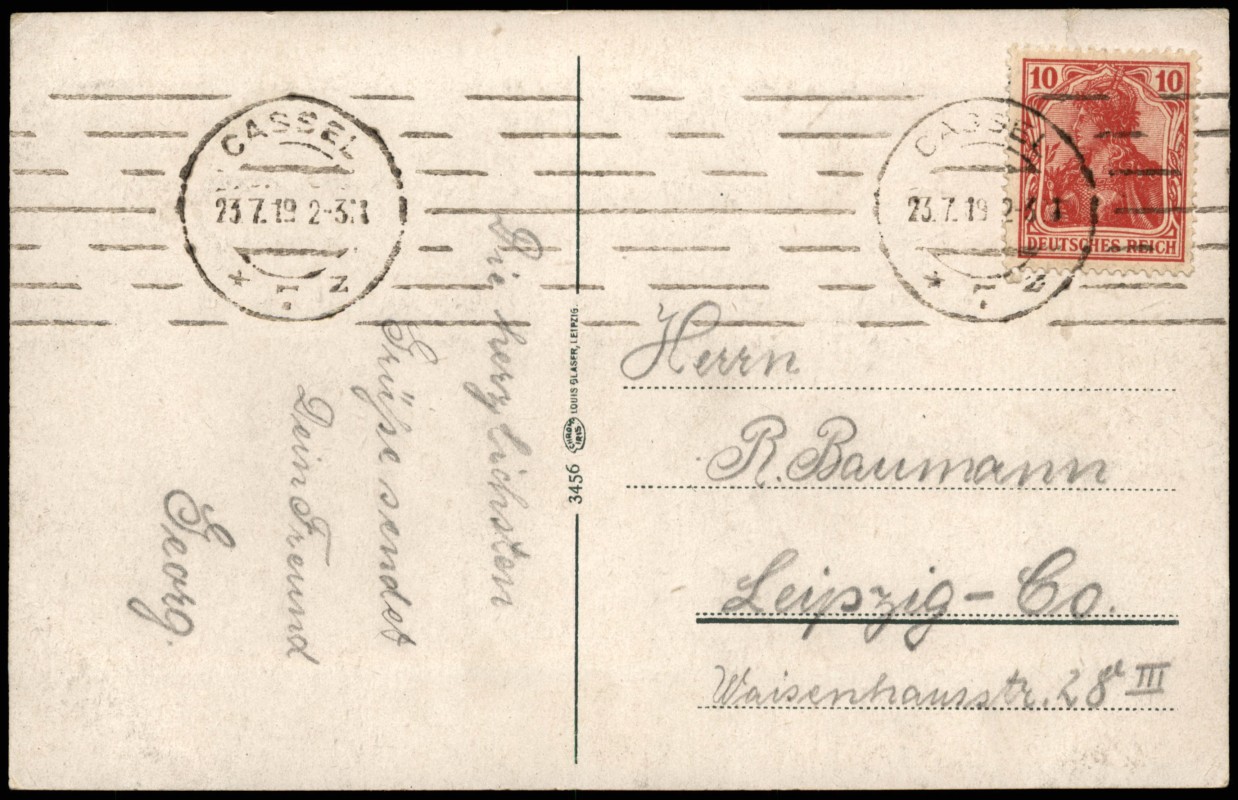 CASSEL
23.7.19 2-3 N
* 1 z
CASSEL
23.7.19 2-3 N
* 1 z
10 10
DEUTSCHES REICH
Die herzlichsten
Grüße sendet
Dein Freund
Georg.
3456 CHROM IRIS LOUIS GLASER, LEIPZIG.
Herrn
R. Baumann
Leipzig - Co.
Waisenhausstr. 28 III